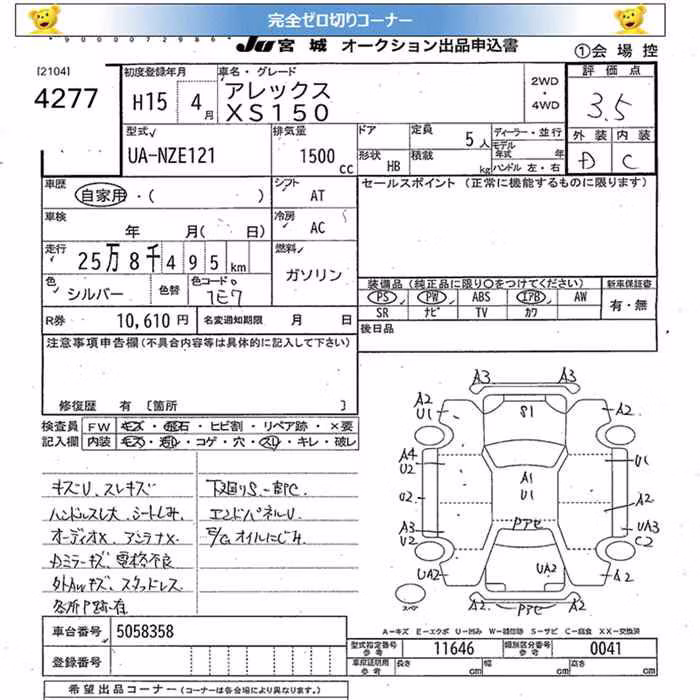 完全ゼロ切りコーナー
90000072986
JU 宮城 オークション出品申込書
①会場控
[2104]
4277
初度登録年月
H15 4月
車名・グレード
アレックス
XS150
2WD
・
4WD
評価点
3.5
外装 内装
D C
型式
UA-NZE121
排気量
1500 cc
ドア
形状 HB
定員 5人
積載 kg
ディーラー・並行
モデル年式 年
ハンドル 左・右
車歴
自家用・( )
シフト AT
セールスポイント (正常に機能するものに限ります)
車検
年 月( 日)
冷房 AC
走行
25万8千495km
燃料 ガソリン
色 シルバー 色替 色コードNo. 1E7
装備品 (純正品に限り〇をつけてください) 新車保証書
PS PW ABS エアB AW
SR ナビ TV カワ
有・無
R券 10,610円 名変通知期限 月 日
後日品
注意事項申告欄(不具合内容等は具体的に記入して下さい)
修復歴 有 [箇所 ]
検査員 FW キズ・飛石・ヒビ割・リペア跡・×要
記入欄 内装 キズ・汚れ・コゲ・穴・スレ・キレ・破レ
キズU、スレキズ
ハンドルスレ大 シートしみ、
オーディオX、アンテナX、
Dミラーキズ、電格不良
外AWキズ、スタッドレス
各所P跡有
下廻りS、一部C
エンドパネルU
E/G オイルにじみ
A3
A2
U1
S1
A2
A4
U2
U1
A1
U1
U2
A2
A3
U2
Pアセ
UA3
C2
UA2
UA2
A2
A2
Pアセ
A3
スペア
A-キズ E-エクボ U-凹み W-補修跡 S-サビ C-腐食 XX-交換済
車台番号 5058358
登録番号
型式指定番号 参考 11646 類別区分番号 参考 0041
車庫証明用 参考 長さ cm 幅 cm 高さ cm
希望出品コーナー (コーナーは各会場により異なります。)